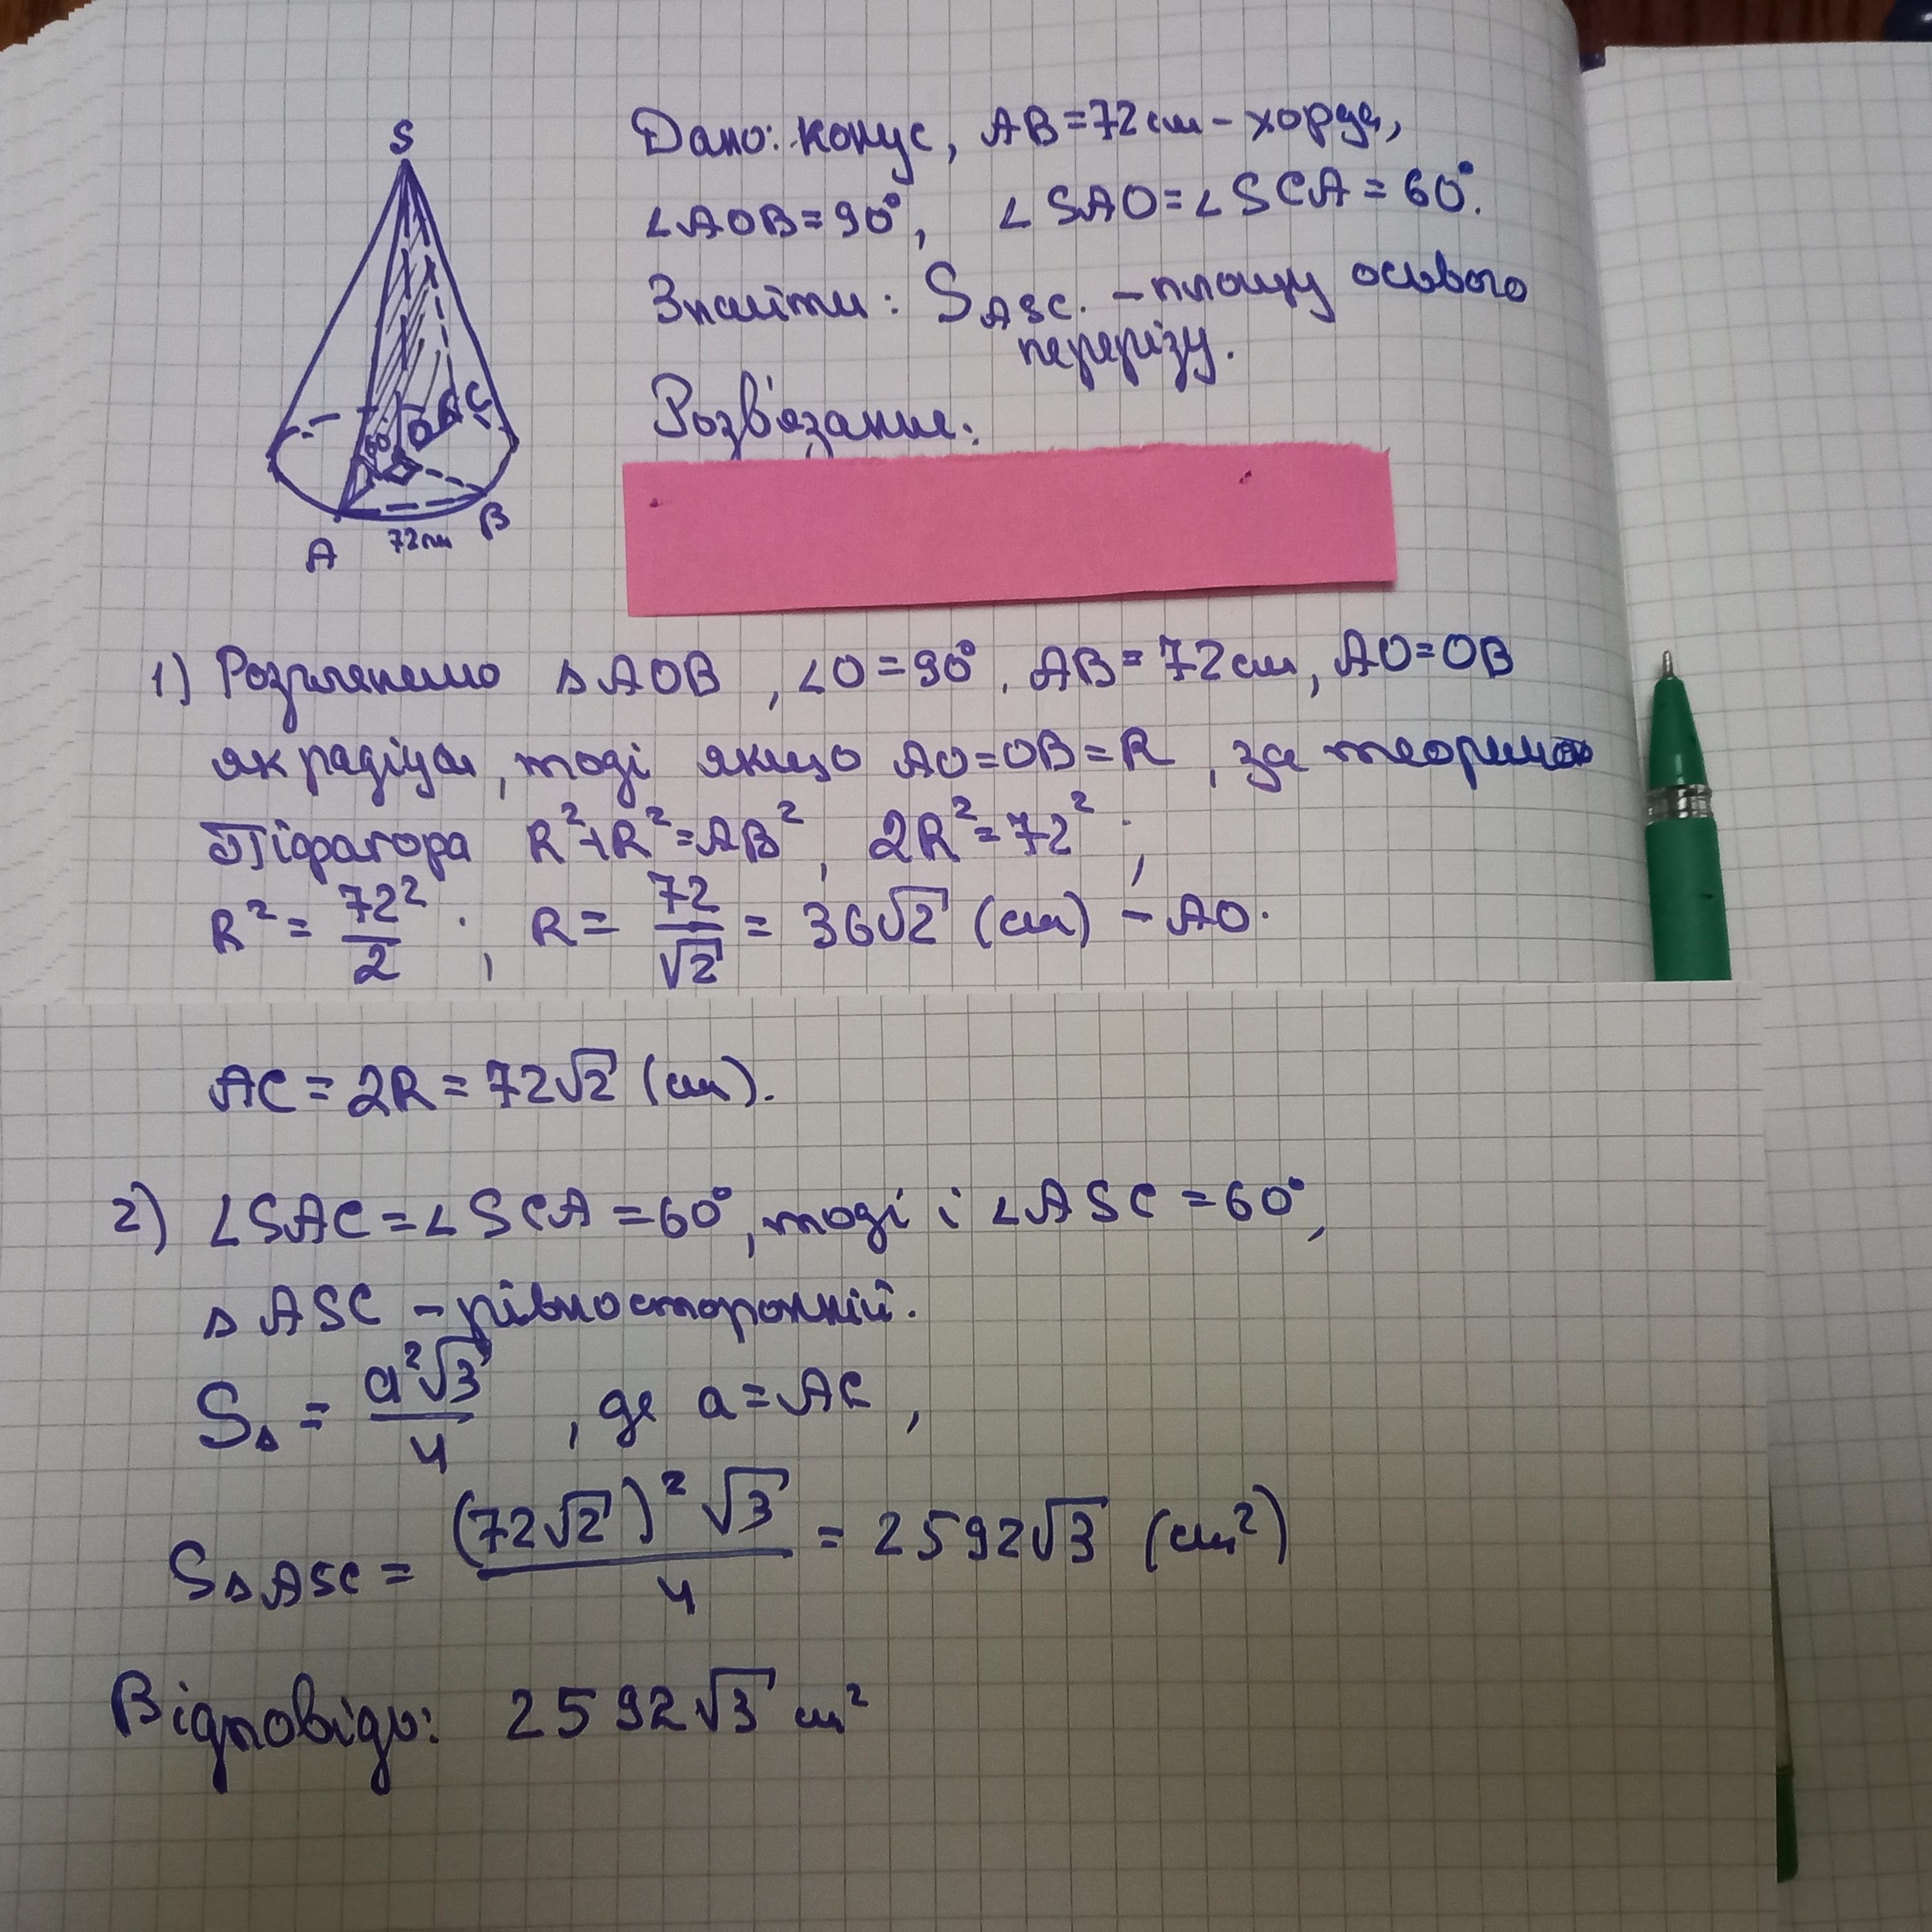 S
A
B
C
O
60°
72 см
Дано: конус, AB = 72 см - хорда,
∠AOB = 90°, ∠SAO = ∠SCA = 60°.
Знайти: S ASC. - площу осьового
перерізу.
Розв'язання:
1) Розглянемо △AOB, ∠O = 90°. AB = 72 см, AO = OB
як радіуси, тоді якщо AO = OB = R, за теоремою
Піфагора R² + R² = AB², 2R² = 72²;
R² = 72²/2; R = 72/√2 = 36√2 (см) - AO.
AC = 2R = 72√2 (см).
2) ∠SAC = ∠SCA = 60°, тоді і ∠ASC = 60°,
△ASC - рівносторонній.
S△ = a²√3/4, де a = AC,
S△ASC = (72√2)²√3/4 = 2592√3 (см²)
Відповідь: 2592√3 см²